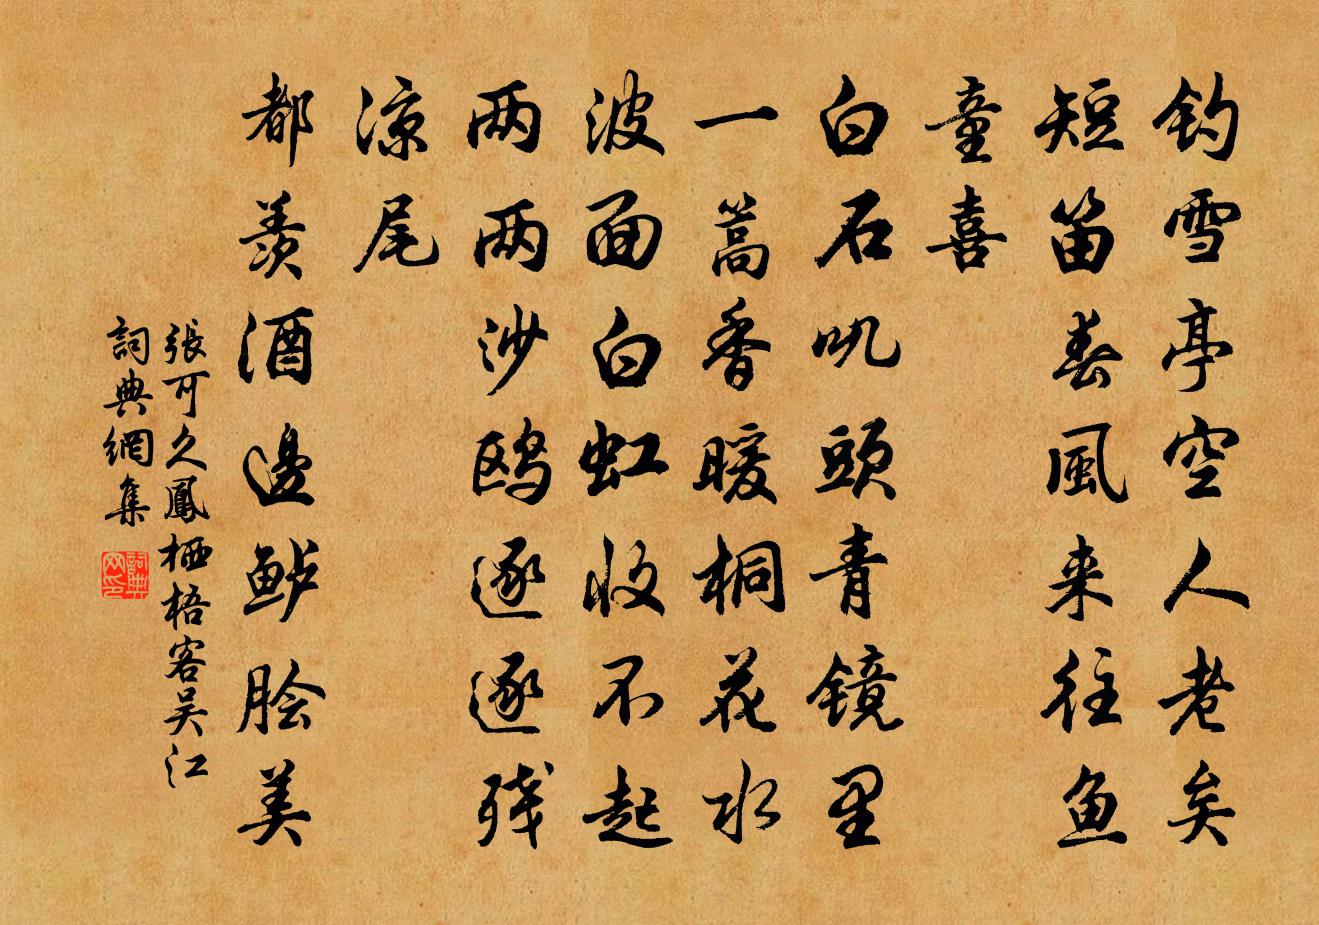 钓雪亭空人老矣
短笛春風来往鱼
童喜
白石叽頭青镜里
一篙香暖桐花水
波面白虹收不起
两两沙鸥逐逐残
凉尾
都羡酒邊鲈脍美
張可久鳳栖梧客吴江
詞典網集
詞典网印